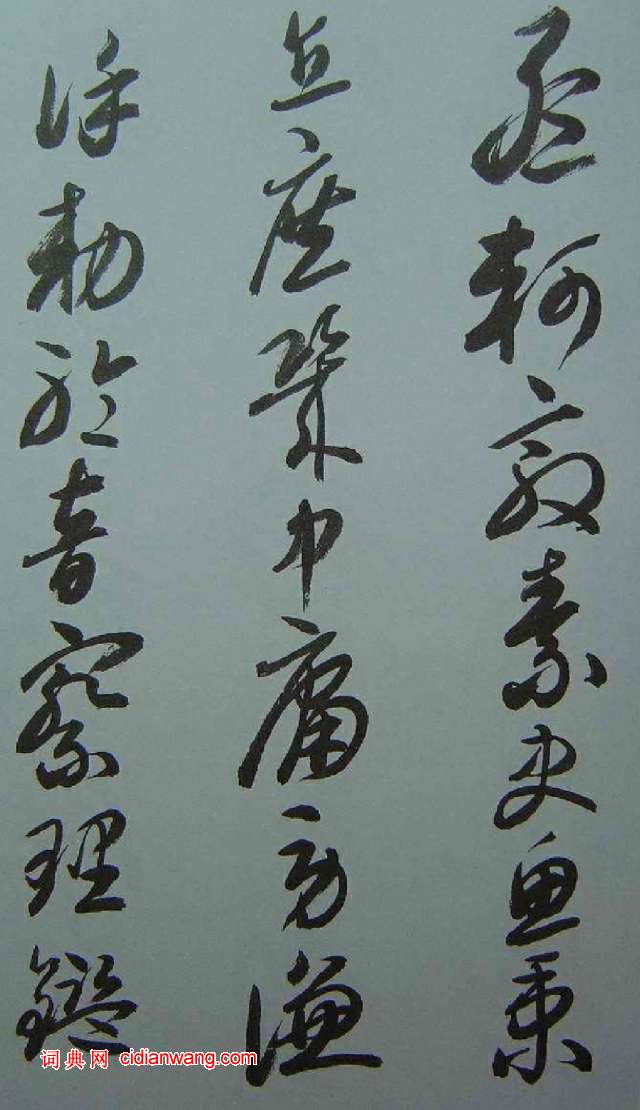 孟軻敦素史魚秉
直庶幾中庸勞謙
謹勅聆音察理鑑
词典网 cidianwang.com